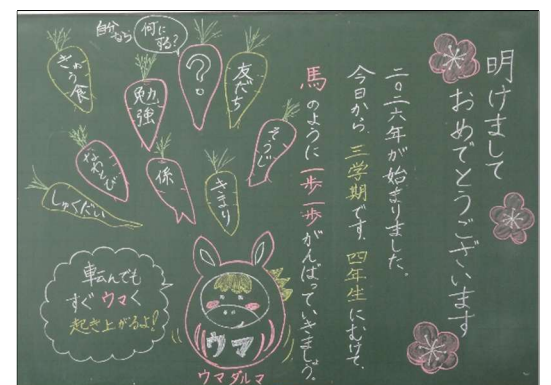 明けまして
おめでとうございます
二〇二六年が始まりました。
今日から、三学期です。四年生にむけて、
馬のように一歩一歩がんばっていきましょう。
自分なら
何に
する?
きゅう食
勉強
?
友だち
なわとび
係
きまり
そうじ
しゅくだい
転んでも
すぐウマく
起き上がるよ!
ウマ
ウマダルマ